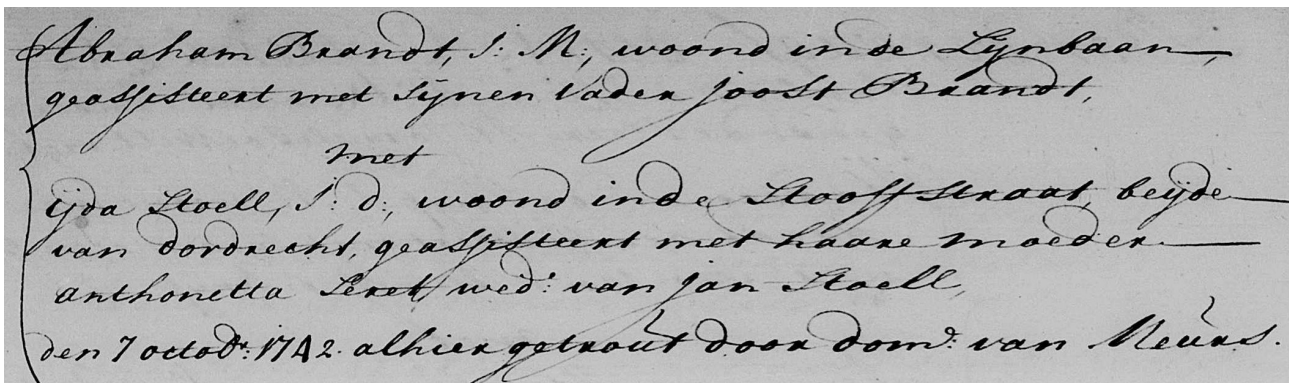 Abraham Brandt, J: M:, woond in de Lijnbaan,
geassisteert met Sijnen Vader Joost Brandt,
met
ijda Stoell, J: d:, woond in de Stoofstraat, beijde
van dordrecht, geassisteert met haare moeder
anthonetta Seret wed: van Jan Stoell,
den 7 octobr: 1742. alhier getrout door dom: van Meurs.